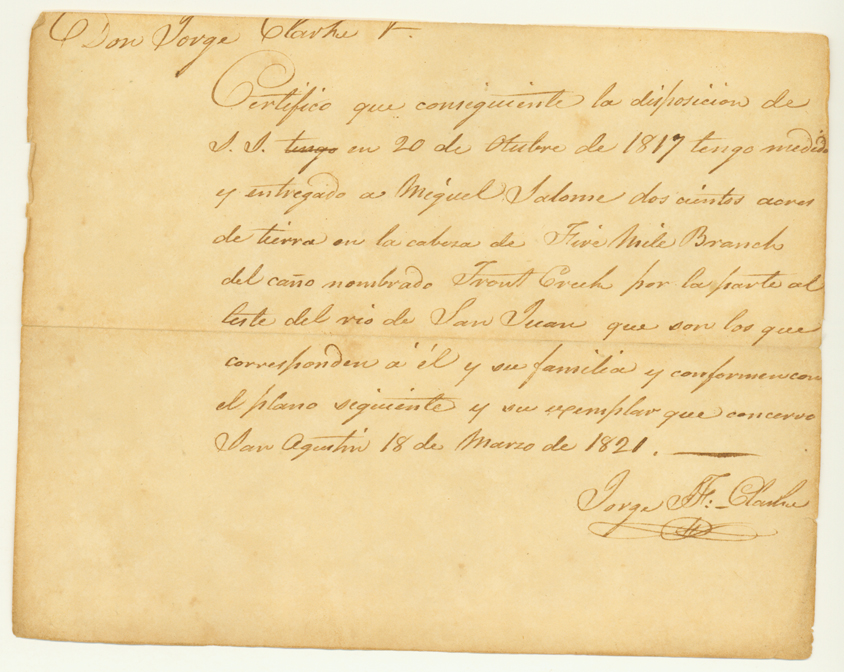 Don Jorge Clarke &.
Certifico que consiguiente la disposicion de
S. S. tengo en 20 de Otubre de 1817 tengo medido
y entregado a Miguel Salome dos cientos acres
de tierra en la cabeza de Five Mile Branch
del caño nombrado Trout Creek por la parte al
leste del rio de San Juan que son los que
corresponden á él y su familia y conformen con
el plano siguiente y su exemplar que concervo
San Agustin 18 de Marzo de 1821.
Jorge J. F. Clarke